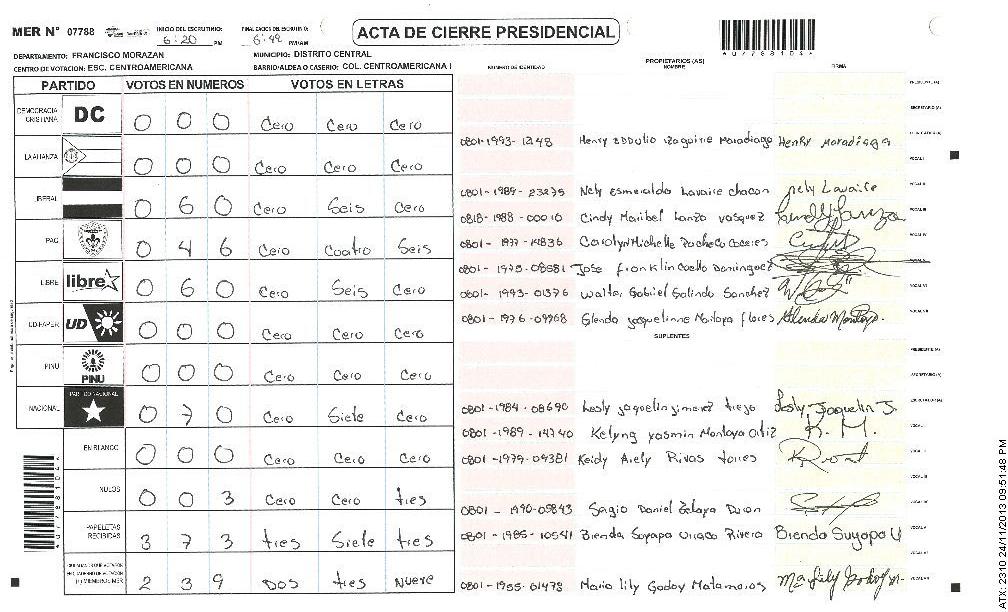 MER N° 07788 INICIO DEL ESCRUTINIO: 6:20 PM FINALIZACIÓN DEL ESCRUTINIO: 6:49 PM/AM
ACTA DE CIERRE PRESIDENCIAL
DEPARTAMENTO: FRANCISCO MORAZAN MUNICIPIO: DISTRITO CENTRAL
CENTRO DE VOTACION: ESC. CENTROAMERICANA BARRIO/ALDEA O CASERIO: COL. CENTROAMERICANA I
PARTIDO VOTOS EN NUMEROS VOTOS EN LETRAS
DEMOCRACIA CRISTIANA DC 0 0 0 Cero Cero Cero
LA ALIANZA 0 0 0 Cero Cero Cero
LIBERAL 0 6 0 Cero Seis Cero
PAC 0 4 6 Cero Cuatro Seis
LIBRE libre 0 6 0 Cero Seis Cero
UD-FAPER UD 0 0 0 Cero Cero Cero
PINU PINU 0 0 0 Cero Cero Cero
NACIONAL PARTIDO NACIONAL 0 7 0 Cero Siete Cero
EN BLANCO 0 0 0 Cero Cero Cero
NULOS 0 0 3 Cero Cero tres
PAPELETAS RECIBIDAS 3 7 3 tres Siete tres
2 3 9 Dos tres Nueve
NUMERO DE IDENTIDAD PROPIETARIOS (AS) NOMBRE FIRMA
PRESIDENTE (A)
SECRETARIO (A)
0801-1993-1248 Henry
VOCAL I
0801-1989-23275 Nely Esmeralda Lavaire chacon nely Lavaire
0818-1988-00010 Cindy Maribel Lanza vasquez
0801-1977-14836 Carolyn Michelle Pacheco Caceres
0801-1975-08581 Jose franklin Coello Dominguez
0801-1993-01376 Walter Gabriel Galindo Sanchez
0801-1976-09968 Glenda Jaquelinne Montoya flores Glenda Montoya
SUPLENTES
PRESIDENTE (A)
SECRETARIO (A)
0801-1984-08690 Lesly Jaquelin Jimenez trejo Lesly Jaquelin J.
0801-1989-14740 Kelyng yasmin Montoya Ortiz K. M.
0801-1979-09381 Keidy Arely Rivas torres
0801-1990-05843 Sagio Daniel Zelaya
0801-1985-10541 Brenda Suyapa Rivera Brenda Suyapa U
0801-1955-01478 Maria lily Godoy Matamoros
*07788104*
ATX: 2310 24/11/2013 09:51:48 PM